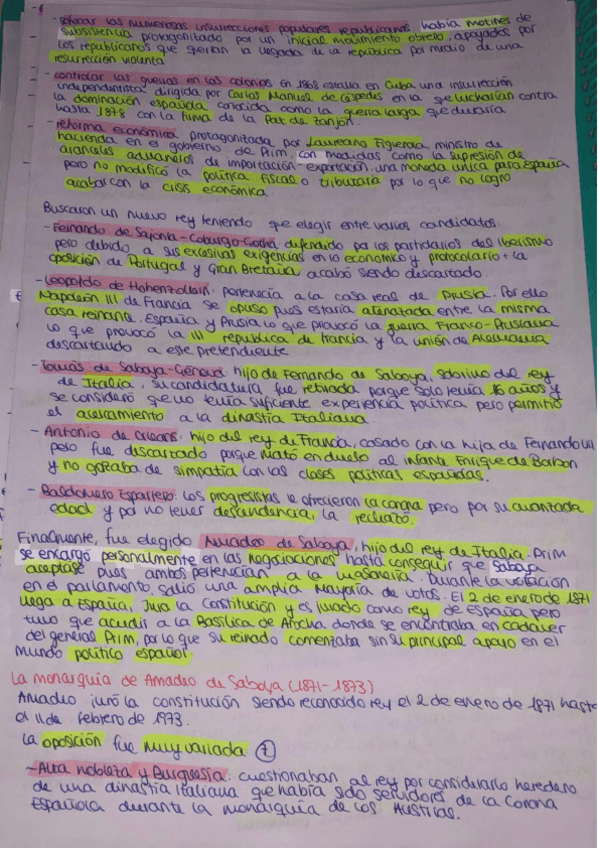 - sofocar las numerosas insurrecciones populares republicanas había motines de
subsistencia protagonizado por un inicial movimiento obrero, apoyados por
los republicanos que querían la llegada de la república por medio de una
resurrección violenta
- controlar las guerras en las colonias en 1868 estalla en Cuba una insurrección
independentista dirigida por Carlos Manuel de Céspedes en la que lucharían contra
la dominación española conocida como la guerra larga que duraría
hasta 1878 con la firma de la Paz de Zanjón.
- reforma económica protagonizada por Laureano Figuerola, ministro de
hacienda en el gobierno de Prim, con medidas como la supresión de
aranceles aduaneros de importación-exportación, una moneda única para España
pero no modificó la política fiscal o tributaria por lo que no logró
acabar con la crisis económica
Buscaron un nuevo rey teniendo que elegir entre varios candidatos:
- Fernando de Sajonia-Coburgo-Gotha, defendido por los partidarios del iberismo
pero debido a sus excesivas exigencias en lo económico y protocolario + la
oposición de Portugal y Gran Bretaña acabó siendo descartado.
- Leopoldo de Hohenzollern: pertenecía a la casa real de Prusia. Por ello
Napoleón III de Francia se opuso pues estaría atenazada entre la misma
casa reinante. España y Prusia lo que provocó la guerra Franco-Prusiana
lo que provocó la III republica de francia y la unión de Alemania
descartando a este pretendiente
- Tomás de Saboya-Génova: hijo de Fernando de Saboya, sobrino del rey
de Italia, su candidatura fue retirada porque solo tenía 16 años y
se consideró que no tenía suficiente experiencia política pero permitió
el acercamiento a la dinastía Italiana.
- Antonio de Orleans: hijo del rey de Francia, casado con la hija de Fernando VII
pero fue descartado porque mató en duelo al infante Enrique de Borbon
y no gozaba de simpatía con las clases políticas españolas.
- Baldomero Espartero: los progresistas le ofrecieron la corona pero por su avanzada
edad y por no tener descendencia, la rechazó.
Finalmente, fue elegido Amadeo de Saboya, hijo del rey de Italia. Prim
se encargó personalmente en las negociaciones hasta conseguir que Saboya
aceptase pues ambos pertenecían a la masonería. Durante la votación
en el parlamento, salió una amplia mayoría de votos. El 2 de enero de 1871
llega a España, Jura la constitución y es jurado como rey de España, pero
tuvo que acudir a la Basílica de Atocha donde se encontraba en cadaver
del general Prim, por lo que su reinado comenzaba sin su principal apoyo en el
mundo político español.
La monarquía de Amadeo de Saboya (1871-1873)
Amadeo juró la constitución siendo reconocido rey el 2 de enero de 1871 hasta
el 11 de febrero de 1973.
la oposición fue muy variada 7
- Alta nobleza y Burguesía: cuestionaban al rey por considerarlo heredero
de una dinastía italiana que había sido servidores de la Corona
Española durante la monarquía de los Austrias.